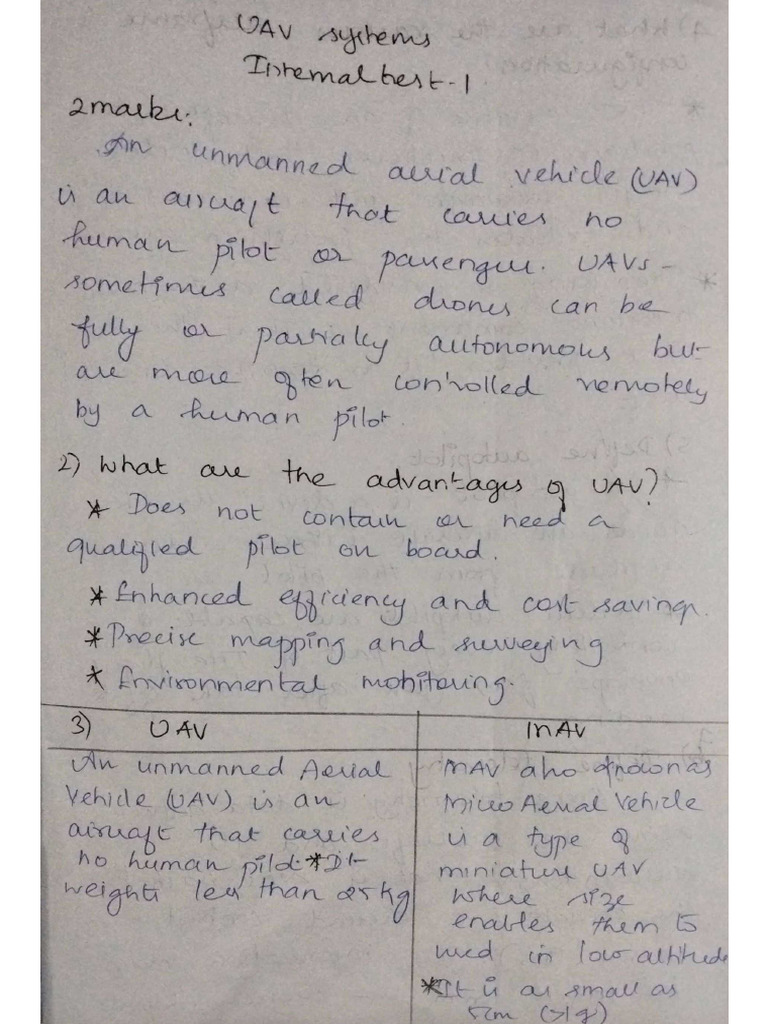 UAV systems
Internal test-1
2marks:
An unmanned aerial vehicle (UAV)
is an aircraft that carries no
human pilot or passenger. UAVs -
sometimes called drones can be
fully or partially autonomous but
are more often controlled remotely
by a human pilot.
2) What are the advantages of UAV?
* Does not contain or need a
qualified pilot on board.
* Enhanced efficiency and cost savings.
* Precise mapping and surveying
* Environmental monitoring.
3) UAV
An unmanned Aerial
Vehicle (UAV) is an
aircraft that carries
no human pilot. * It
weights less than 25kg
MAV
MAV also known as
Micro Aerial Vehicle
is a type of
miniature UAV
where size
enables them to
used in low altitude
* It is as small as
5cm (>1g)